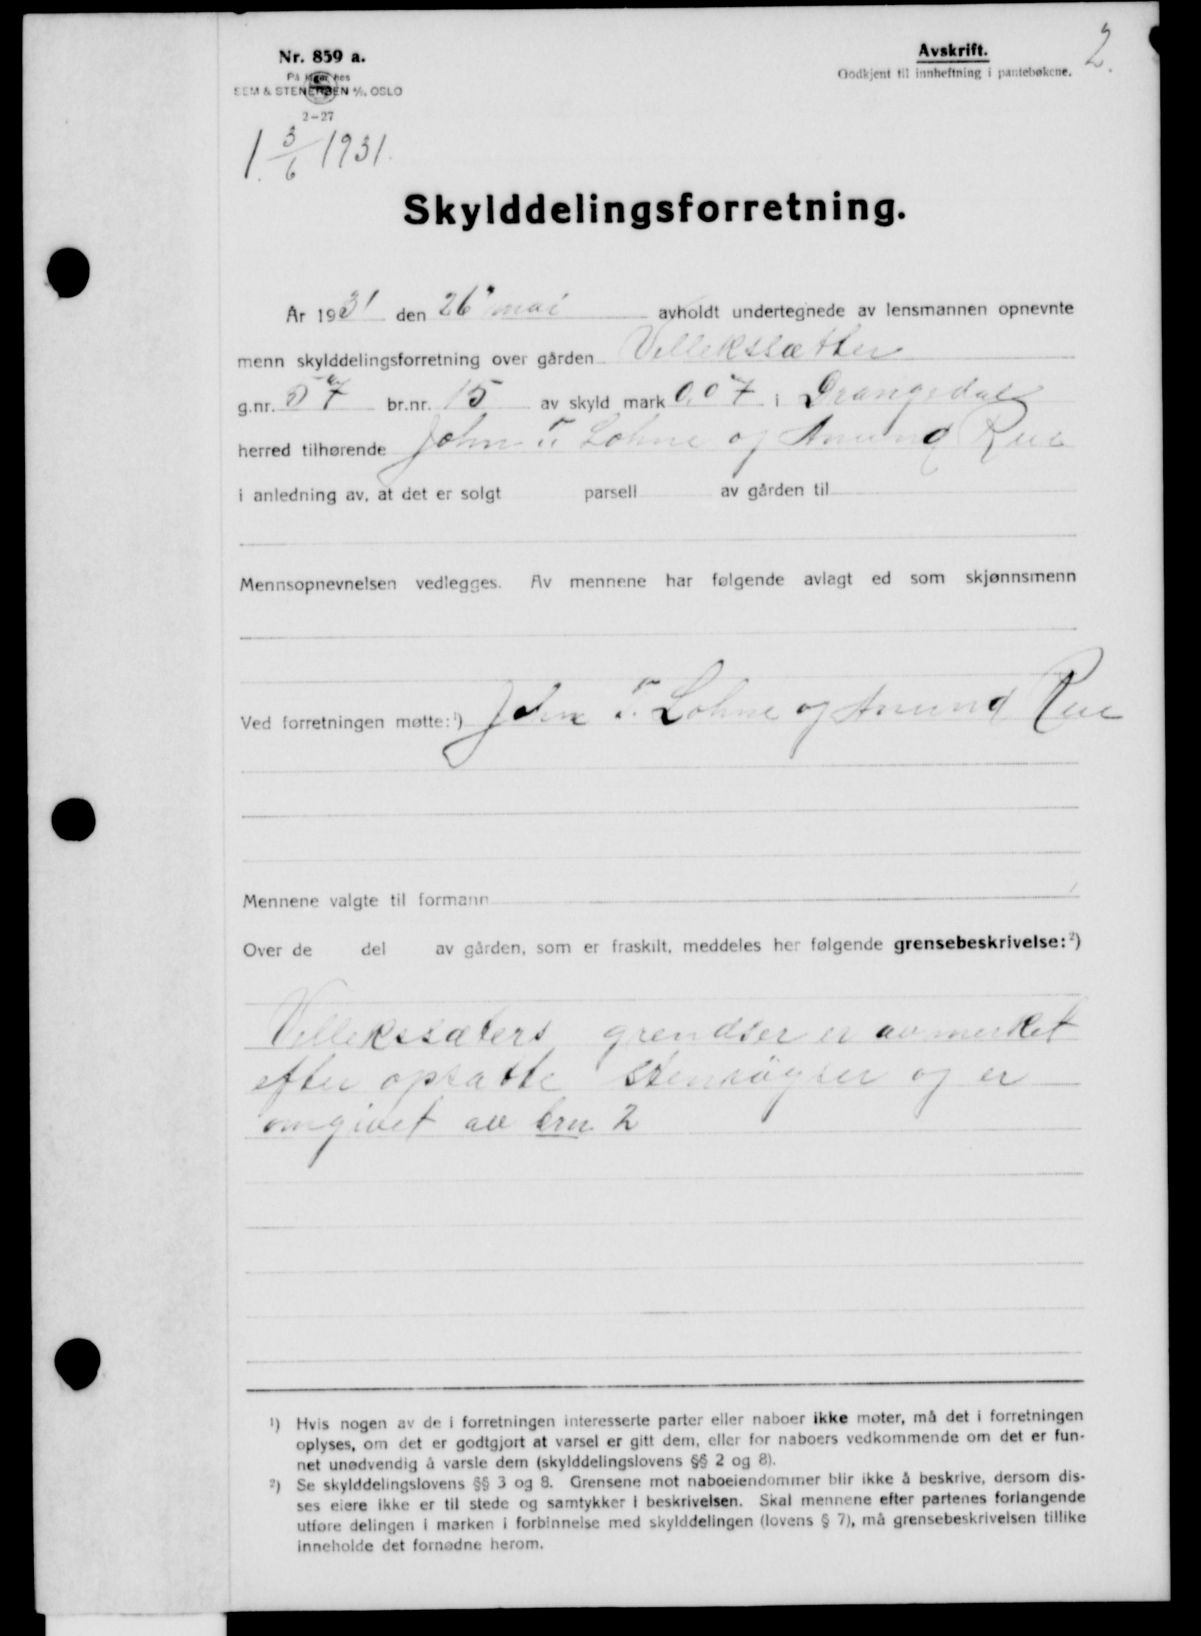 Nr. 859 a.
På lager hos
SEM & STENERSEN A/S, OSLO
2-27
1. 3/6 1931.
Avskrift.
Godkjent til innheftning i pantebøkene.
2.
Skylddelingsforretning.
År 1931 den 26 mai avholdt undertegnede av lensmannen opnevnte
menn skylddelingsforretning over gården Villekssætter
g.nr. 57 br.nr. 15 av skyld mark 0.07 i Drangedal
herred tilhørende John T. Lohne og Amund Rue
i anledning av, at det er solgt parsell av gården til
Mennsopnevnelsen vedlegges. Av mennene har følgende avlagt ed som skjønnsmenn
Ved forretningen møtte:¹) John T. Lohne og Amund Rue
Mennene valgte til formann
Over de del av gården, som er fraskilt, meddeles her følgende grensebeskrivelse:²)
Villekssæters grendser er avmerket
efter opsatte stenrögser og er
omgivet av brn. 2
¹) Hvis nogen av de i forretningen interesserte parter eller naboer ikke møter, må det i forretningen
oplyses, om det er godtgjort at varsel er gitt dem, eller for naboers vedkommende om det er fun-
net unødvendig å varsle dem (skylddelingslovens §§ 2 og 8).
²) Se skylddelingslovens §§ 3 og 8. Grensene mot naboeiendommer blir ikke å beskrive, dersom dis-
ses eiere ikke er til stede og samtykker i beskrivelsen. Skal mennene efter partenes forlangende
utføre delingen i marken i forbinnelse med skylddelingen (lovens § 7), må grensebeskrivelsen tillike
inneholde det fornødne herom.